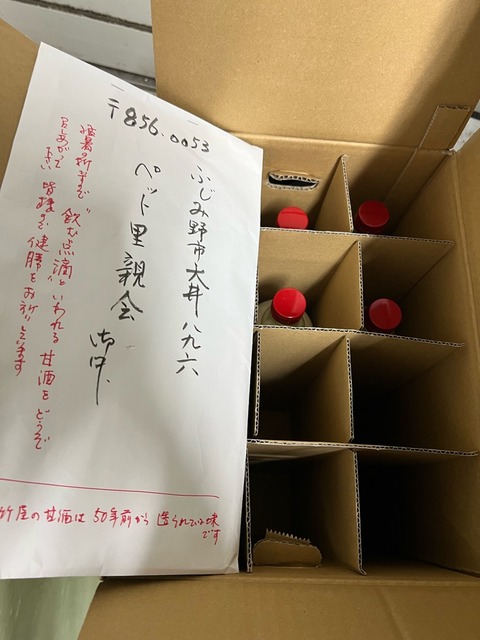 〒856.0053
ふじみ野市大井八九六
ペット里親会 御中
猛暑の折
"飲む点滴"といわれる甘酒をどうぞ
お召し上がり下さい
皆様のご健勝をお祈りします
の甘酒は50年前から造られている味
です